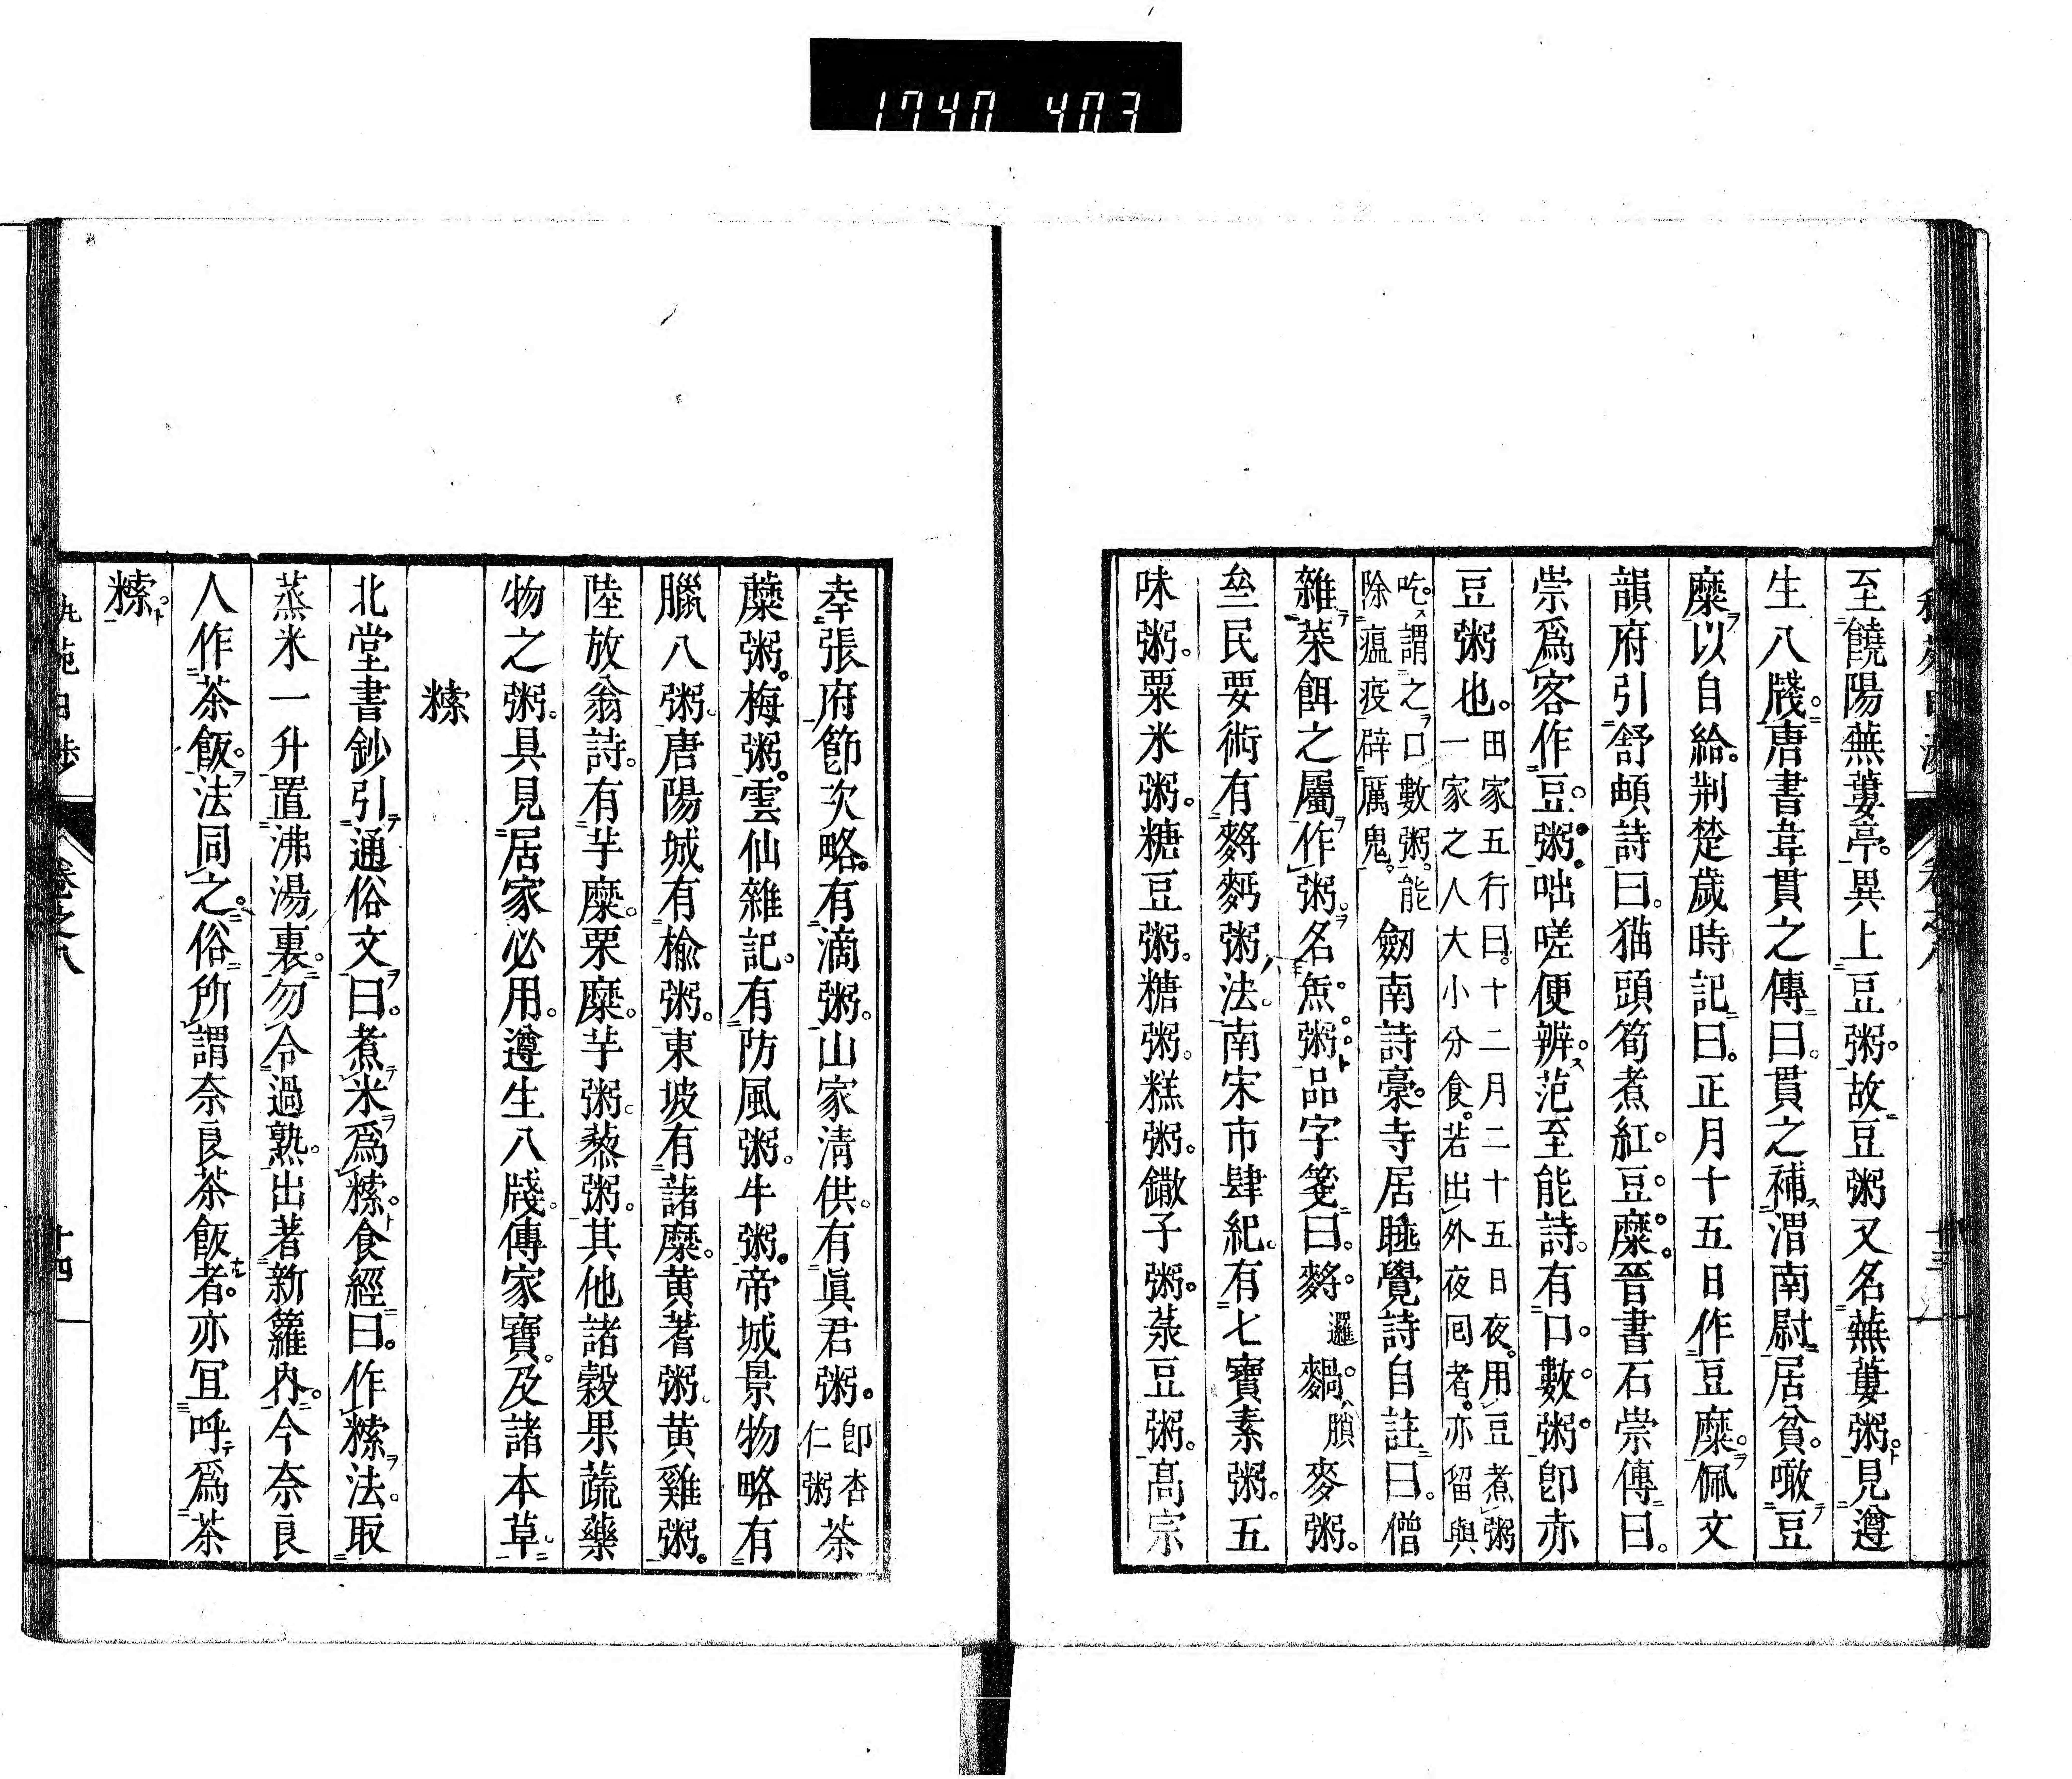 1740 403
至饒陽蕪蔞亭。異上豆粥。故豆粥又名蕪蔞粥。見遵
生八牋。唐書韋貫之傳曰。貫之補渭南尉。居貧。噉豆
糜以自給。荆楚歲時記曰。正月十五日作豆糜。佩文
韻府引舒頔詩曰。猫頭筍煮紅豆糜。晉書石崇傳曰。
崇爲客作豆粥。咄嗟便辨。范至能詩。有口數粥。卽赤
豆粥也。田家五行曰。十二月二十五日夜。用豆煮粥
一家之人大小分食。若出外夜囘者。亦留與
吃。謂之口數粥。能
除瘟疫辟厲鬼。劒南詩藁。寺居睡覺詩自註曰。僧
雜菜餌之屬作粥。名缹粥。品字箋曰。麫。邏䴹。䐝麥粥。
㕘民要術有麫䴴粥法。南宋市肆紀。有七寶素粥。五
味粥。粟米粥。糖豆粥。糖粥。糕粥。鏾子粥。菉豆粥。高宗
幸張府節次略。有滴粥。山家淸供。有眞君粥。卽杏
仁粥荼
蘼粥。梅粥。雲仙雜記。有防風粥。牛粥。帝城景物略有
臘八粥。唐陽城有楡粥。東坡有諸糜。黄蓍粥。黄雞粥。
陸放翁詩。有芋糜。栗糜。芋粥。蒸粥。其他諸穀果蔬藥
物之粥。具見居家必用。遵生八牋。傳家寶。及諸本草。
䊝
北堂書鈔引通俗文曰。煮米爲䊝。食經曰。作䊝法。取
蒸米一升置沸湯裏。勿令過熟。出著新籮內。今奈良
人作茶飯。法同之。俗所謂奈良茶飯者。亦冝呼爲茶
䊝。
卷之八
十四